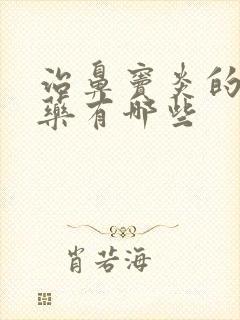 治鼻窦炎的
药有哪些
肖若海